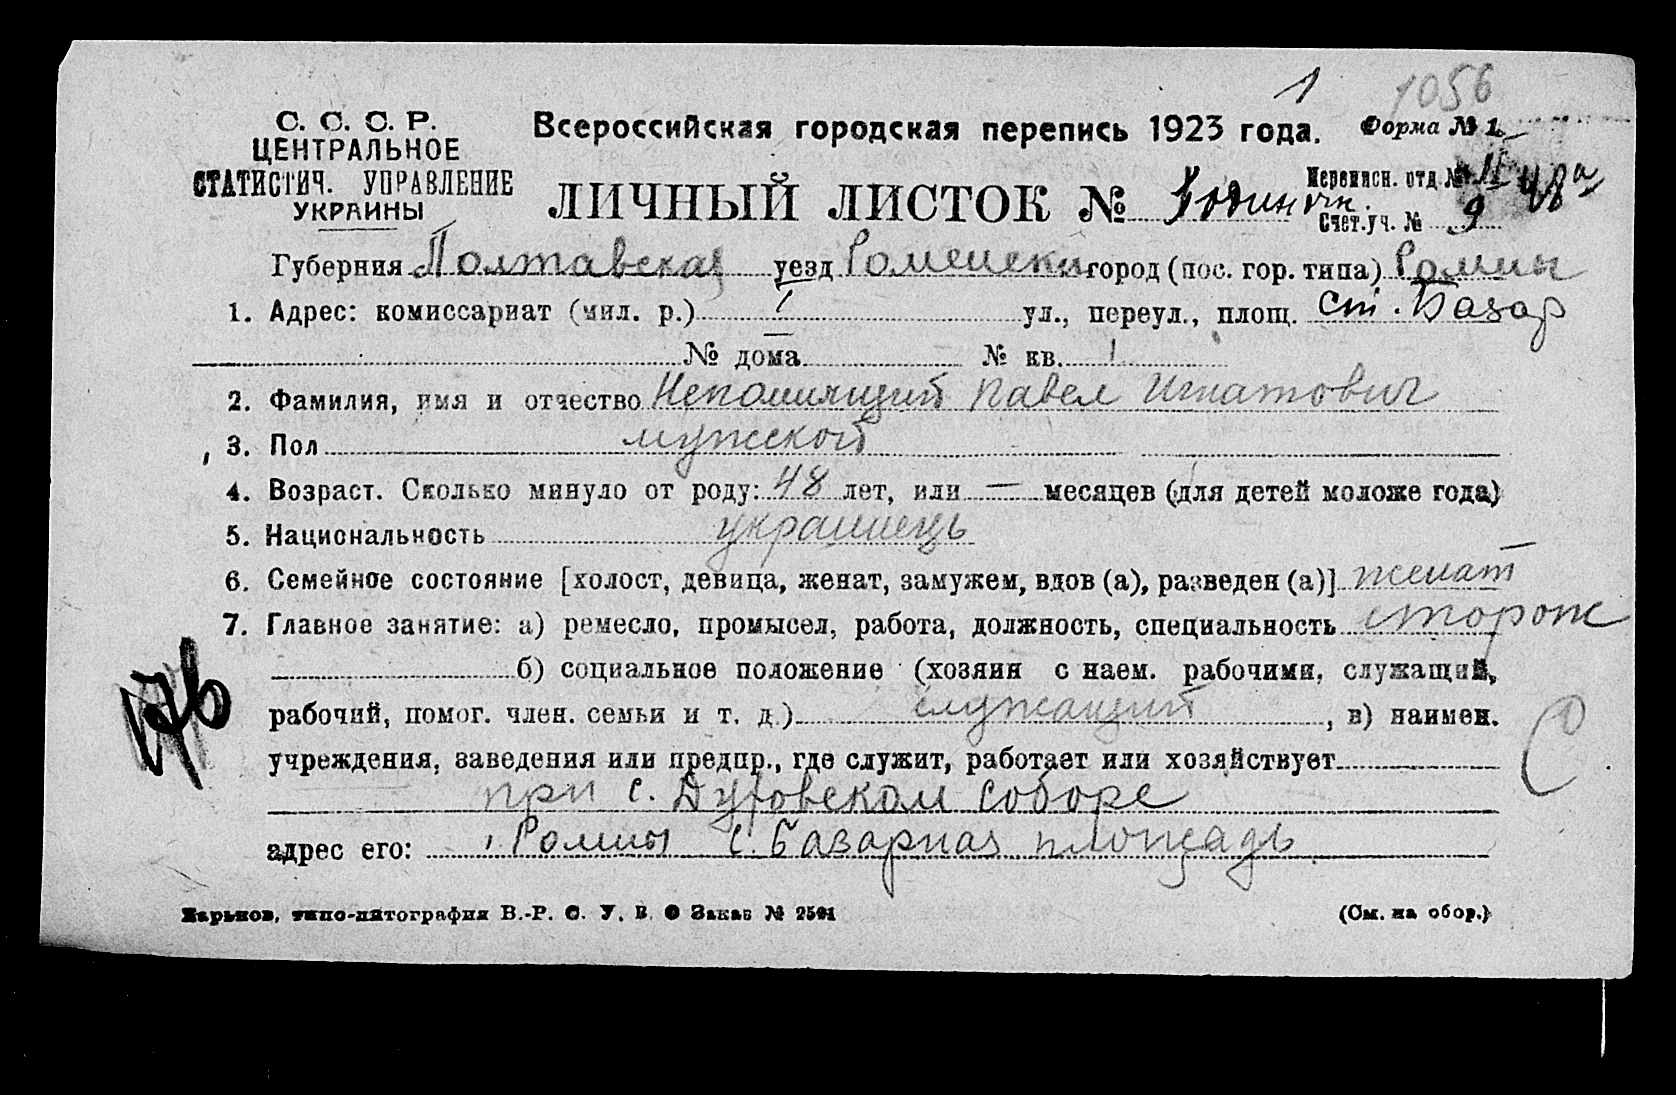 1 1056
С. С. С. Р.
ЦЕНТРАЛЬНОЕ
СТАТИСТИЧ. УПРАВЛЕНИЕ
УКРАИНЫ
Всероссийская городская перепись 1923 года. Форма № 1.
ЛИЧНЫЙ ЛИСТОК №
Переписн. отд № II 48а
Счет.уч. № 9
Губерния Полтавская уезд Роменски город (пос. гор. типа) Ромны
1. Адрес: комиссариат (мил. р.) I ул., переул., площ. Ст. Базар
№ дома № кв. 1
2. Фамилия, имя и отчество Непомнящий Павел Игнатович
3. Пол мужской
4. Возраст. Сколько минуло от роду: 48 лет, или — месяцев (для детей моложе года)
5. Национальность украинець
6. Семейное состояние [холост, девица, женат, замужем, вдов (а), разведен (а)] женат
7. Главное занятие: а) ремесло, промысел, работа, должность, специальность сторож
б) социальное положение (хозяин с наем. рабочими, служащий,
рабочий, помог. член. семьи и т. д.) служащий, в) наимен.
учреждения, заведения или предпр., где служит, работает или хозяйствует
при с. Духовском соборе
адрес его: Ромны С. Базарная площадь
Харьков, типо-литография В.-Р. С. У. В. О Заказ № 2501
(См. на обор.)
С